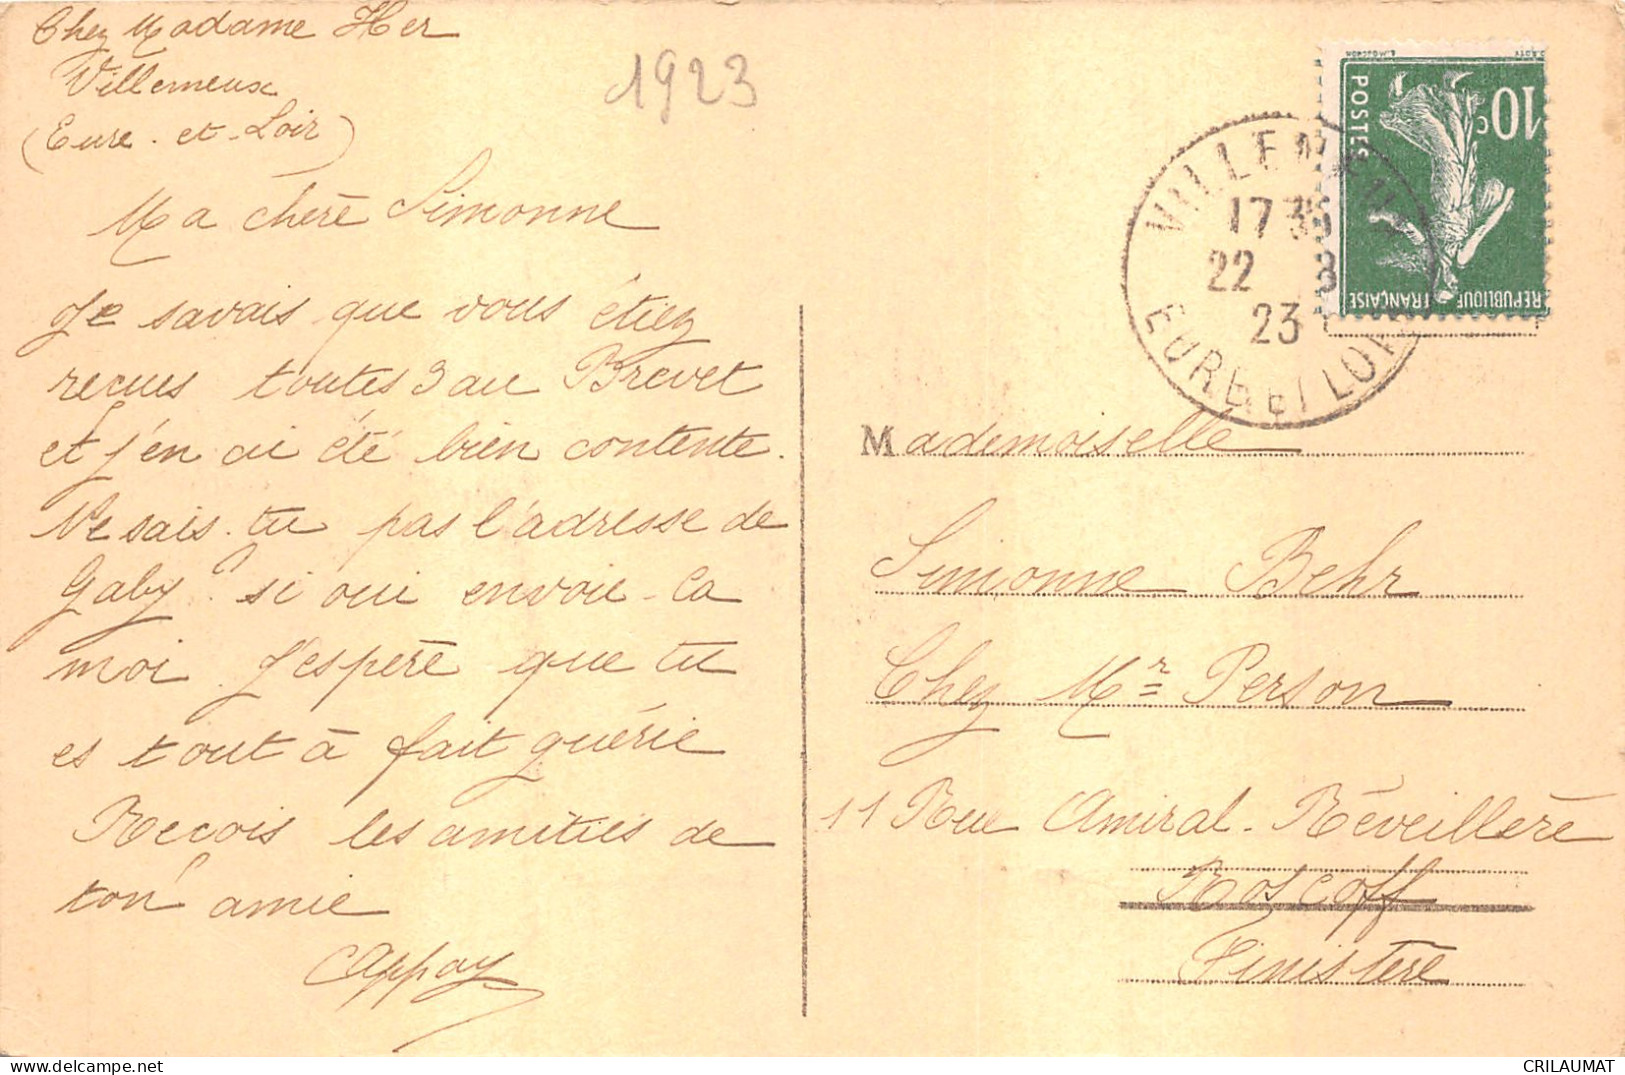 Chez Madame Her
Villemeux
(Eure-et-Loir)
1923
Ma chère Simonne
Je savais que vous étiez
reçues toutes 3 au Brevet
et j'en ai été bien contente.
Ne sais-tu pas l'adresse de
Gaby? si oui envoie-la
moi. J'espère que tu
es tout à fait guérie
Reçois les amitiés de
ton amie
CAppay
10c
POSTES
REPUBLIQUE FRANÇAISE
VILLEMEUX
17 35
22 8
23
EURE ET LOIR
Mademoiselle
Simonne Behr
Chez Mr Person
11 Rue Amiral-Réveillère
Roscoff
Finistère
www.delcampe.net
CRILAUMAT